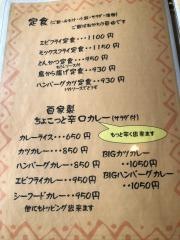 定食（ご飯・みそ汁・小鉢・サラダ・漬物）
エビフライ定食・・・1100円
ミックスフライ定食・・・1150円
とんかつ定食・・・950円
鳥から揚げ定食・・・930円
ハンバーグカツ定食・・930円
自家製
ちょこっと辛口カレー（サラダ付）
もっと辛く出来ます
カレーライス・・・650円
カツカレー・・・850円
ハンバーグカレー・・・850円
エビフライカレー・・・950円
シーフードカレー・・・950円
BIGカツカレー
・・1050円
BIGハンバーグカレー
・・1050円
他にもトッピング出来ます